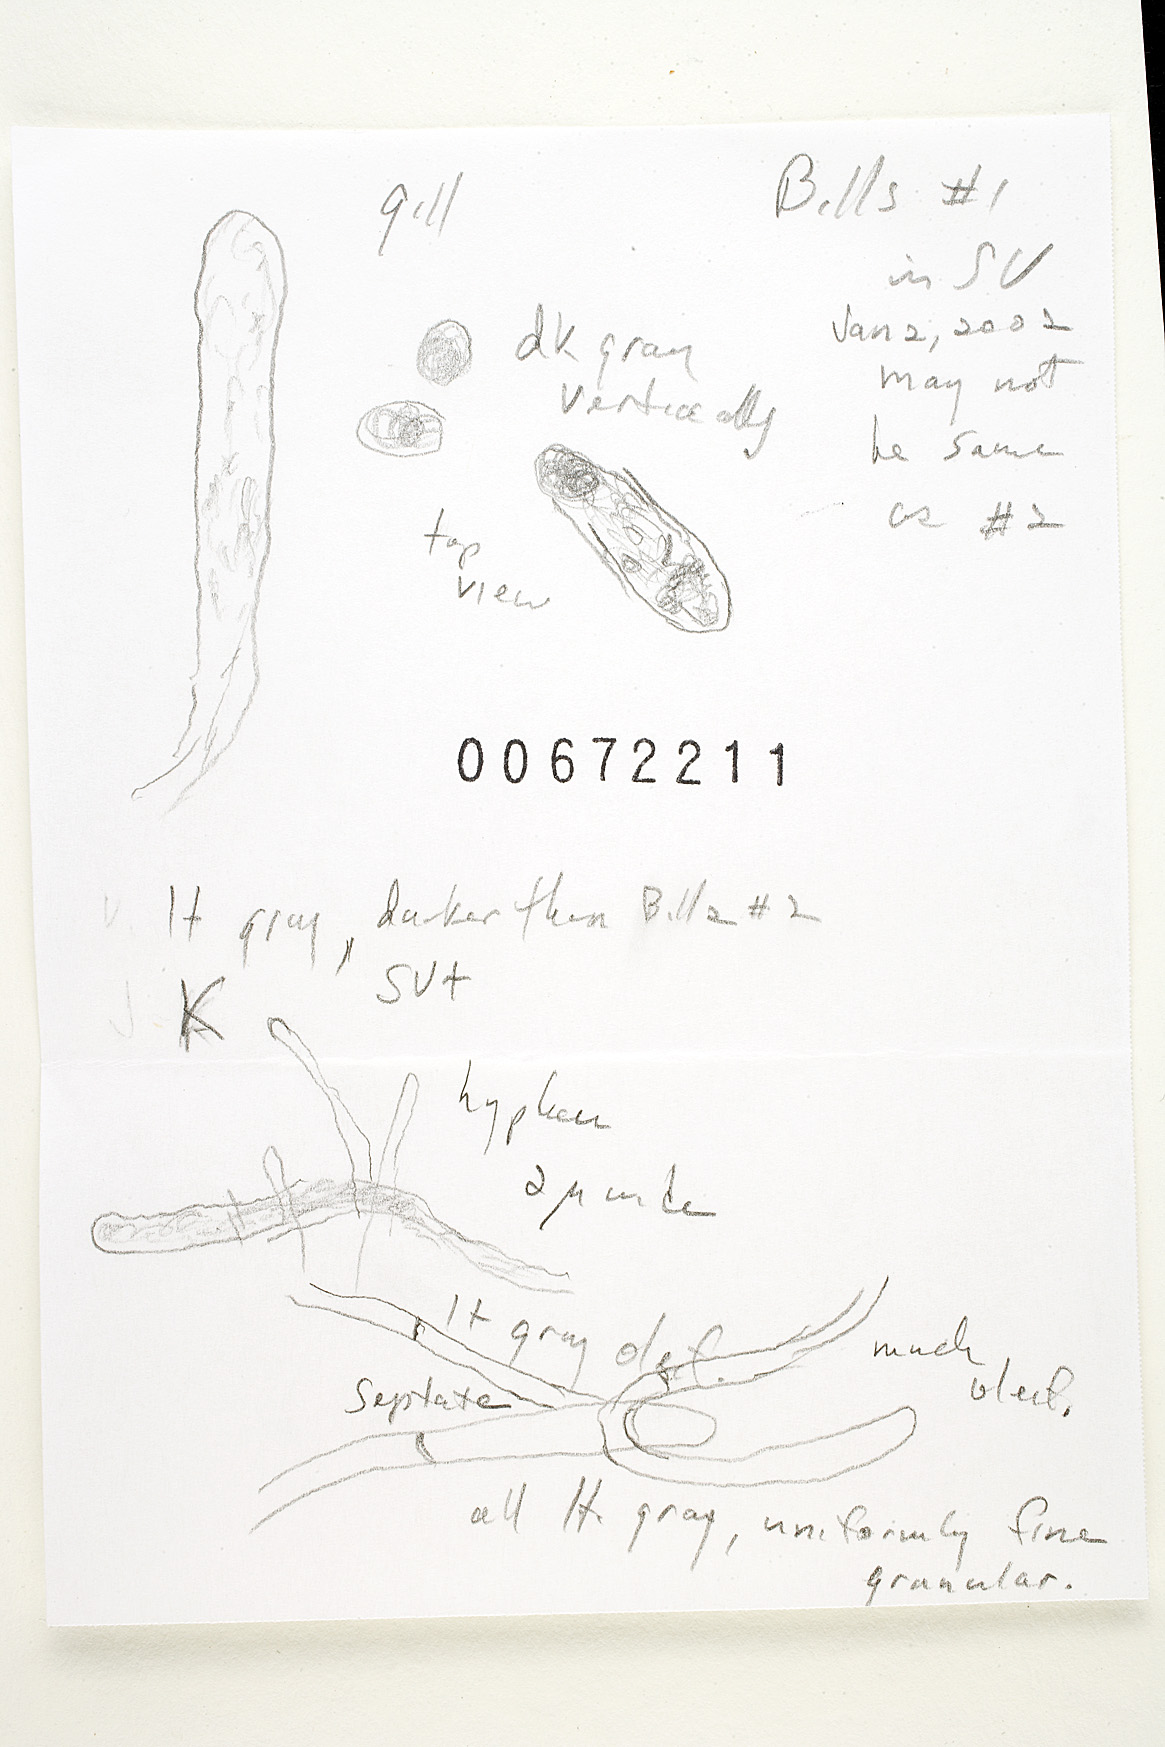 gill
Bills #1
in SV
Jan 2, 2002
may not
be same
as #2
dk gray
vertically
top
view
00672211
lt gray, darker than Bills #2
SV+
K
hyphae
2 µ wide
lt gray
much
septate
all lt. gray, uniformly fine
granular.